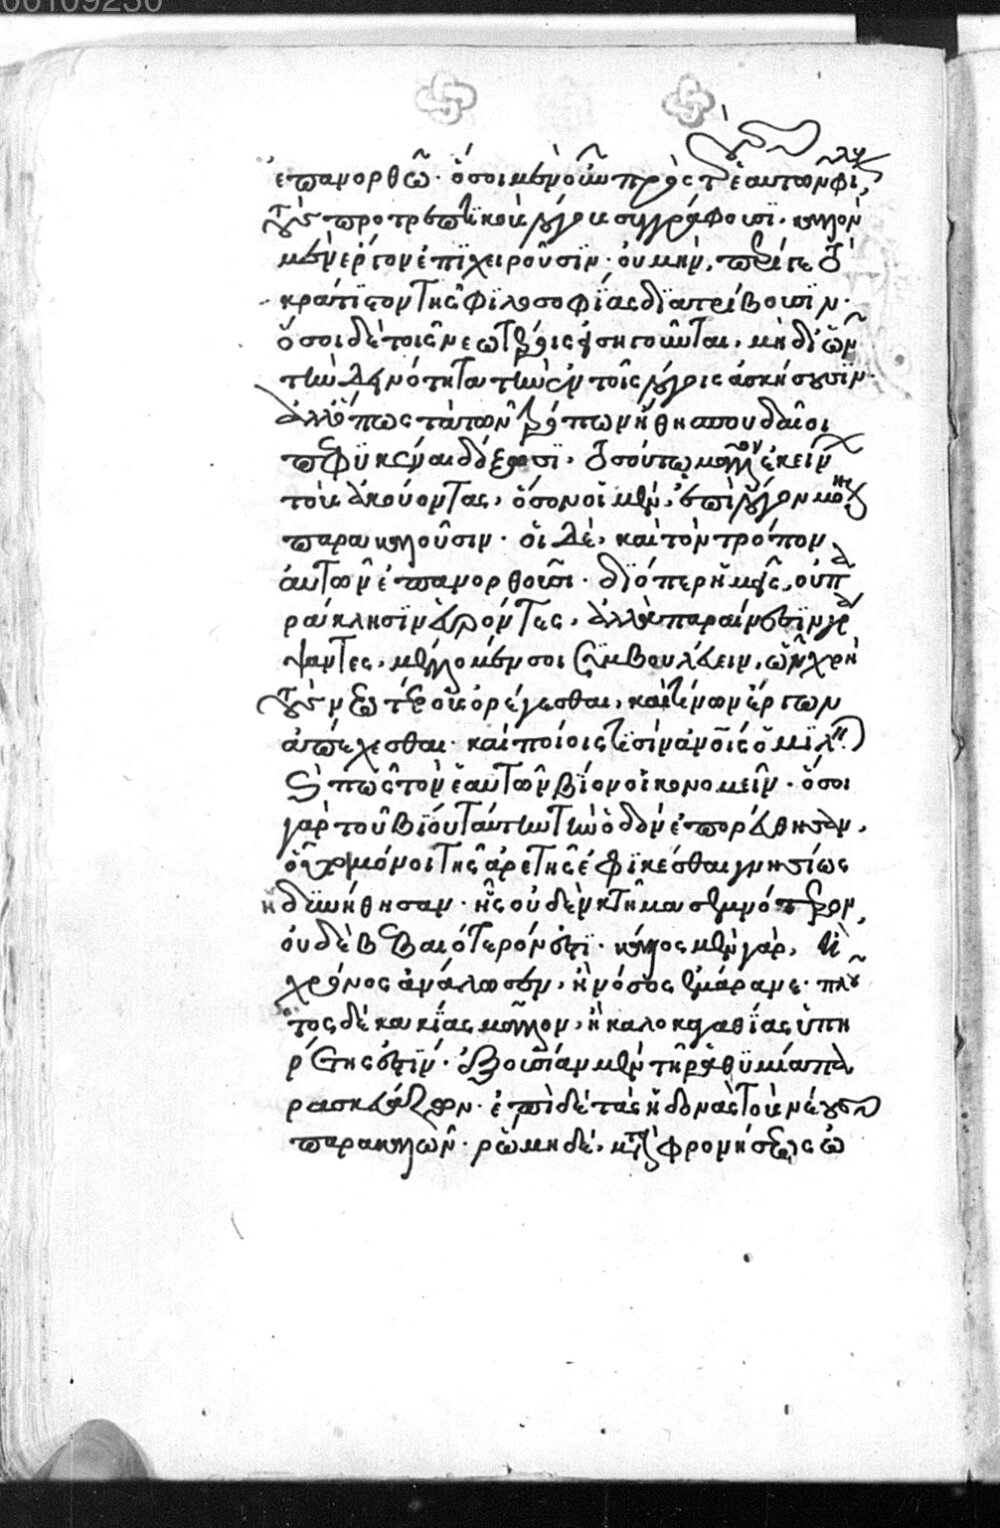 00109230
ἐπανορθῶ· ὅσοι μὲν οὖν πρὸς τ ἑαυτῶν φίλους
τοὺς προτρεπτικοὺς λόγους συγγράφουσι· καλὸν
μὲν ἔργον ἐπιχειροῦσιν· οὐ μὴν, περί γε τὸ
κράτιστον τῆς φιλοσοφίας διατρίβουσιν·
ὅσοι δὲ τοῖς νεωτέροις εἰσηγοῦνται, μὴ δι' ὧν
τὴν δεινότητα τὴν ἐν τοῖς λόγοις ἀσκήσουσιν·
ἀλλ' ὅπως τὰ τῶν τρόπων ἤθη σπουδαῖοι
πεφυκέναι δόξωσι, τοσούτω μᾶλλον ἐκείνων
τοὺς ἀκούοντας, ὅσον οἱ μὲν, ἐπὶ λόγον μόνον
παρακαλοῦσιν· οἱ δὲ, καὶ τὸν τρόπον
αὐτῶν ἐπανορθοῦσι· διόπερ ἡμεῖς, οὐ πα
ράκλησιν εὑρόντες, ἀλλὰ παραίνεσιν γρά
ψαντες, μέλλομέν σοι συμβουλεύειν, ὧν χρὴ
τοὺς νεωτέρους ὀρέγεσθαι, καὶ τίνων ἔργων
ἀπέχεσθαι· καὶ ποίοις τισὶν ἀνοις ὁμιλεῖν
καὶ πῶς τὸν ἑαυτῶν βίον οἰκονομεῖν· ὅσοι
γὰρ τοῦ βίου ταύτην τὴν ὁδὸν ἐπορεύθησαν,
οὗτοι μόνοι τῆς ἀρετῆς ἐφικέσθαι γνησίως
ἠδυνήθησαν· ἧς οὐδὲν κτῆμα σεμνότερον,
οὐδὲ βεβαιότερόν ἐστι· κάλλος μὲν γὰρ, ἢ
χρόνος ἀνάλωσεν, ἢ νόσος ἐμάρανε· πλοῦ
τος δὲ κακίας μᾶλλον, ἢ καλοκαγαθίας ὑπη
ρέτης ἐστίν· ἐξουσίαν μὲν τῇ ῥαθυμία πα
ρασκευάζων· ἐπὶ δὲ τὰς ἡδονὰς τοὺς νέους
παρακαλῶν· ῥώμη δὲ, μετὰ φρονήσεως ὠ